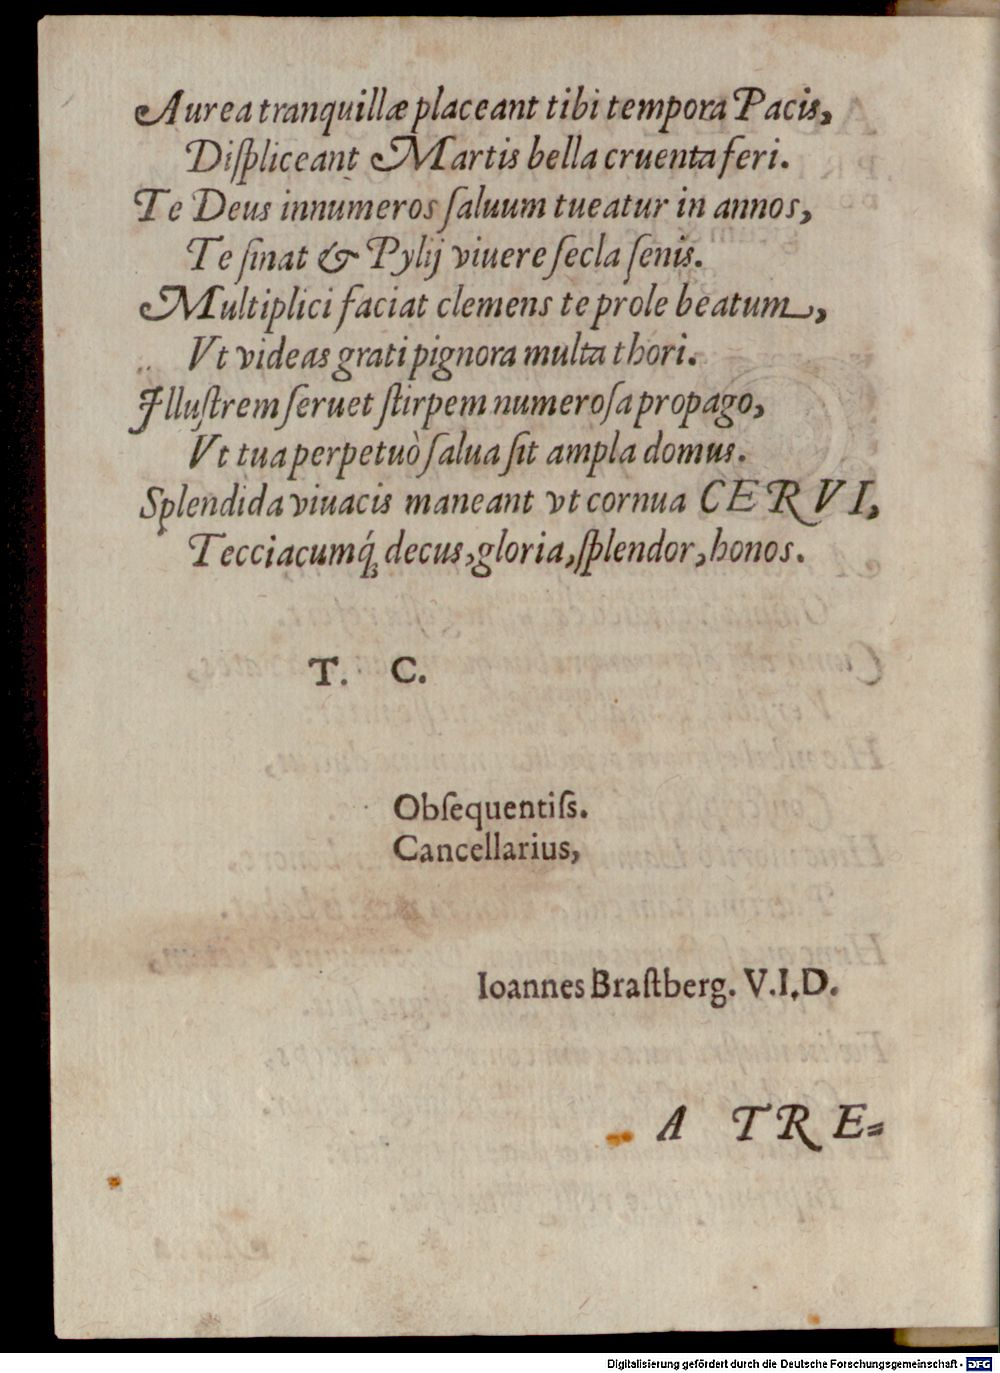 Aurea tranquillæ placeant tibi tempora Pacis,
Diſpliceant Martis bella cruenta feri.
Te Deus innumeros ſaluum tueatur in annos,
Te ſinat & Pylij viuere ſecla ſenis.
Multiplici faciat clemens te prole beatum,
Vt videas grati pignora multa thori.
Illuſtrem ſeruet ſtirpem numeroſa propago,
Vt tua perpetuò ſalua ſit ampla domus.
Splendida viuacis maneant vt cornua CERVI,
Tecciacumq́ꝫ decus, gloria, ſplendor, honos.
T. C.
Obſequentiſs.
Cancellarius,
Ioannes Braſtberg. V.I.D.
A TRE=
Digitalisierung gefördert durch die Deutsche Forschungsgemeinschaft - DFG